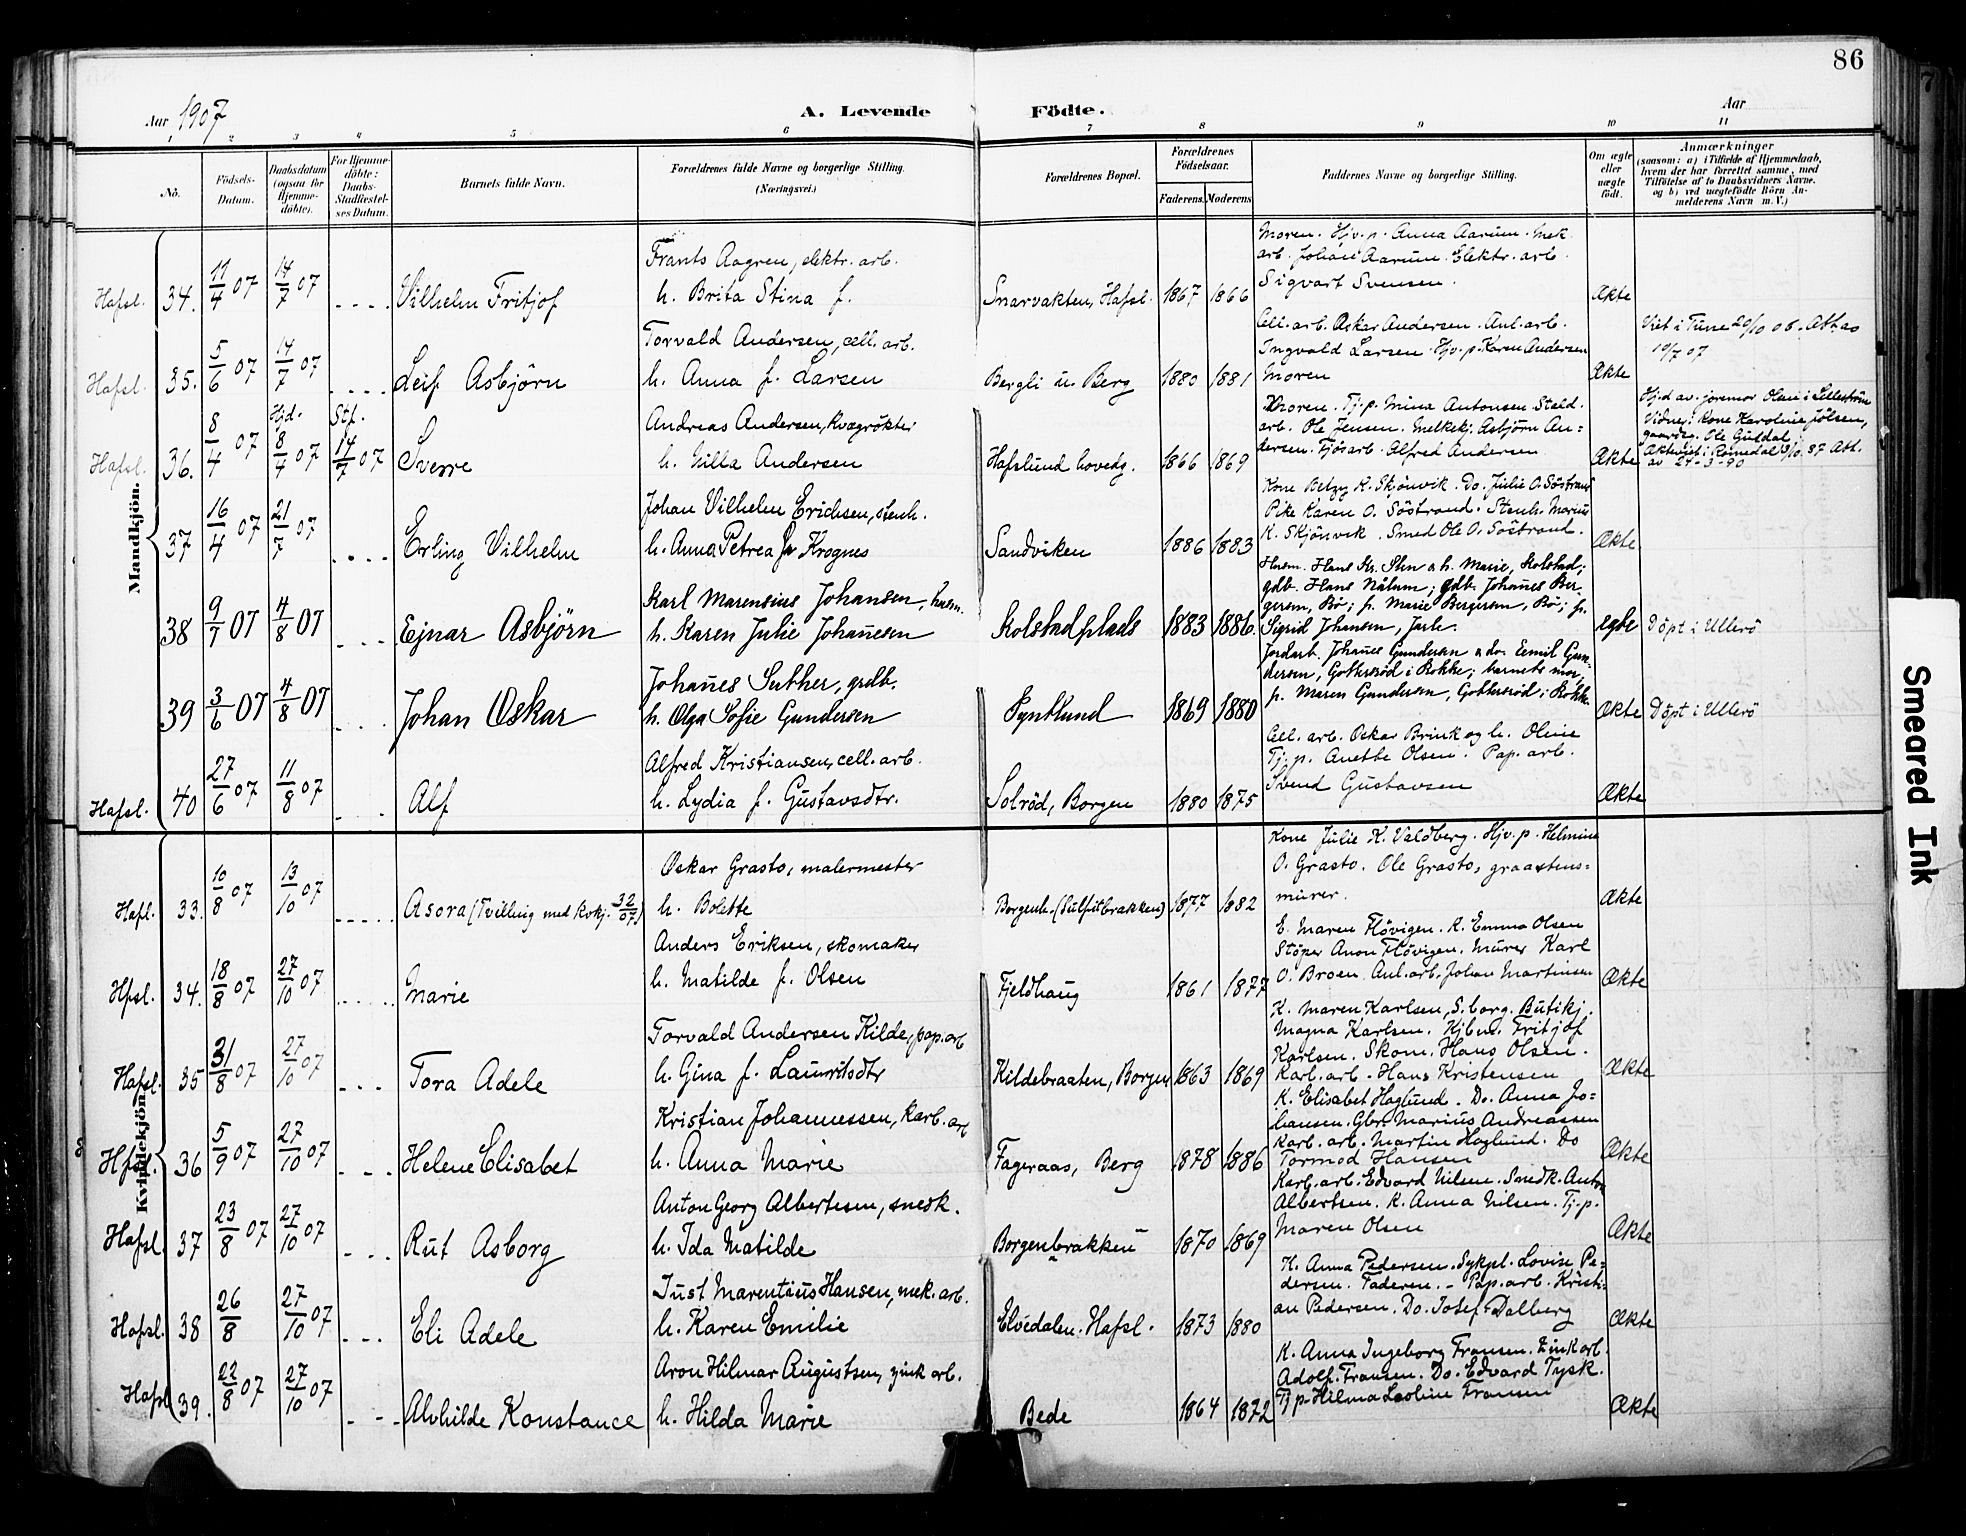 86
Aar 1907
A. Levende Födte.
Aar
1 2 3 4 5 6 7 8 9 10 11
No.
Födsels-Datum.
Daabsdatum (ogsaa for Hjemme-döbte).
For Hjemme-döbte: Daabs-Stadfæstel-ses Datum.
Barnets fulde Navn.
Forældrenes fulde Navne og borgerlige Stilling. (Næringsvei.)
Forældrenes Bopæl.
Forældrenes Födselsaar.
Faderens. Moderens.
Faddernes Navne og borgerlige Stilling.
Om ægte eller uægte födt.
Anmærkninger
(saasom: a) i Tilfælde af Hjemmedaab, hvem der har forrettet samme, med Tilföielse af to Daabsvidners Navne. og b) ved uægtefödte Börn An-melderens Navn m. V.)
Mandkjön.
Hafsl. 34. 11/4 07 14/7 07 - - - - Vilhelm Fritjof
Frants Aagren, elektr. arb.
h. Brita Stina f.
Snarvakten, Hafsl. 1867 1866
Moren. Hjv. p. Anna Aarum. Mek.
arb. Johan Aarum. Elektr. arb.
Sigvart Svensen.
Ækte
Hafsl. 35. 5/6 07 14/7 07 - - - - Leif Asbjörn
Torvald Andersen, cell. arb.
h. Anna f. Larsen
Bergli u. Berg 1880 1881
Cell. arb. Oskar Andersen. Anl. arb.
Ingvald Larsen. Hjv. p. Karen Andersen
Moren
Ækte
Viet i Tune 20/10 06. Att. ao
10/7 07
Hafsl. 36. 8/4 07 Hjd. 8/4 07 Stf. 14/7 07 Sverre
Andreas Andersen, kvægrökter
h. Milla Andersen
Hafslund hovedg. 1866 1869
Moren. Tj. p. Mina Antonsen. Stald.
arb. Ole Jensen. Melkekj. Asbjörn An=
dersen. Fjösarb. Alfred Andersen
Ækte
Hj.d av jormor Olsen i Lilleström
Vidner: Kone Karoline Jölsen,
gaardbr. Ole Guldal
Ækteviet i Romedal 3/10. 87 Att.
av 24-3-90
37 16/4 07 21/7 07 - - - - Erling Vilhelm
Johan Vilhelm Erichsen, stenh.
h. Anna Petrea f. Krognes
Sandviken 1886 1883
Kone Betzy K. Skjönvik. Do. Julie O. Söstrand
Pike Karen O. Söstrand. Stenh. Marius
K. Skjönvik. Smed Ole O. Söstrand.
Ækte
38 9/7 07 4/8 07 - - - Ejnar Asbjörn
Karl Marensius Johansen, husm.
h. Karen Julie Johannesen
Kolstadplads 1883 1886.
Husm. Hans Kr. Sten & h. Marie, Kolstad;
gdb. Hans Nålum; gdb. Johannes Ber
gersen, Bö; f. Marie Bergersen, Bö; p.
Sigrid Johansen,
egte Döpt i Ullerö
39 3/6 07 4/8 07 - - - Johan Oskar
Johannes Suther, grdb.
h. Olga Sofie Gundersen
1869 1880
Jordarb. Johannes Gundersen & do. Eemil Gun
dersen, i Rokke; barnets mor,
p. Maren Gundersen, i Rokke.
Ækte Döpt i Ullerö
Hafsl. 40 27/6 07 11/8 07 - - - Alf
Alfred Kristiansen, cell. arb.
h. Lydia f. Gustavsdtr.
Solröd, Borgen 1880 1875
Cell. arb. Oskar Brink og h. Oline
Tj. p. Anette Olsen. Pap. arb.
Svend Gustavsen
Ækte
Kvindekjön.
Hafl. 33. 10/8 07 13/10 07 - - - - Asora (Tvilling med kvkj. 32/07)
Oskar Grasto, malermester
h. Bolette
Borgenh. (Sulfitbrakken) 1877 1882
Kone Julie K. Valdberg. Hjv. p. Helmine
O. Grasto. Ole Grasto, graastens=
murer.
Ækte
Hfsl. 34. 18/8 07 27/10 07 - - - - Marie
Anders Eriksen, skomaker
h. Matilde f. Olsen
Fjeldhaug 1861 1877
E. Maren Flövigen. K. Emma Olsen
Stöper Anon Flövigen. Murer Karl
O. Broen. Anl. arb. Johan Martinsen
Ækte
Hafsl. 35 31/8 07 27/10 07 - - - Tora Adele
Torvald Andersen Kilde, pap. arb
h. Gina f. Lauritsdtr
Kildebraaten, Borgen 1863 1869
K. Maren Karlsen, S.borg. Butikj.
Magna Karlsen. Hjbud. Fritjof
Karlsen. Skom. Hans Olsen.
Karb. arb. Hans Kristensen
Ækte
Hfsl. 36 5/9 07 27/10 07 - - - Helene Elisabet
Kristian Johannessen, karb. arb
h. Anna Marie
Fageraas, Berg 1878 1886
K. Elisabet Haglund. Do. Anna Jo=
hansen. Gbr. Marius Andreassen
Karb. arb. Martin Haglund. Do
Tormod Hansen
Ækte
Hafsl. 37 23/8 07 27/10 07 - - - Rut Asborg
Anton Georg Albertsen, snedk.
h. Ida Matilde
Borgenbrakken 1870 1869
Karb. arb. Edvard Nilsen. Snedk. Anton
Albertsen. K. Anna Nilsen. Tj. p.
Maren Olsen
Ækte
Hafsl. 38 26/8 27/10 07 - - - Eli Adele
Just Marentius Hansen, mek. arb.
h. Karen Emilie
Elvedalen. Hafsl. 1873 1880
K. Anna Pedersen. Sykpl. Lovise Pe=
dersen. Faderen. - Pap. arb. Kristi=
an Pedersen. Do. Josef Dalberg
Ækte
Hafsl 39. 22/8 07 27/10 07 - - - Alvhilde Konstance
Aron Hilmar Augustsen, zink arb.
h. Hilda Marie
Bede 1864 1872
K. Anna Ingeborg Fransen. Zink arb.
Adolf Fransen. Do. Edvard Tysk.
Tj p. Hilma Leoline Fransen
Ækte
Smeared Ink
7